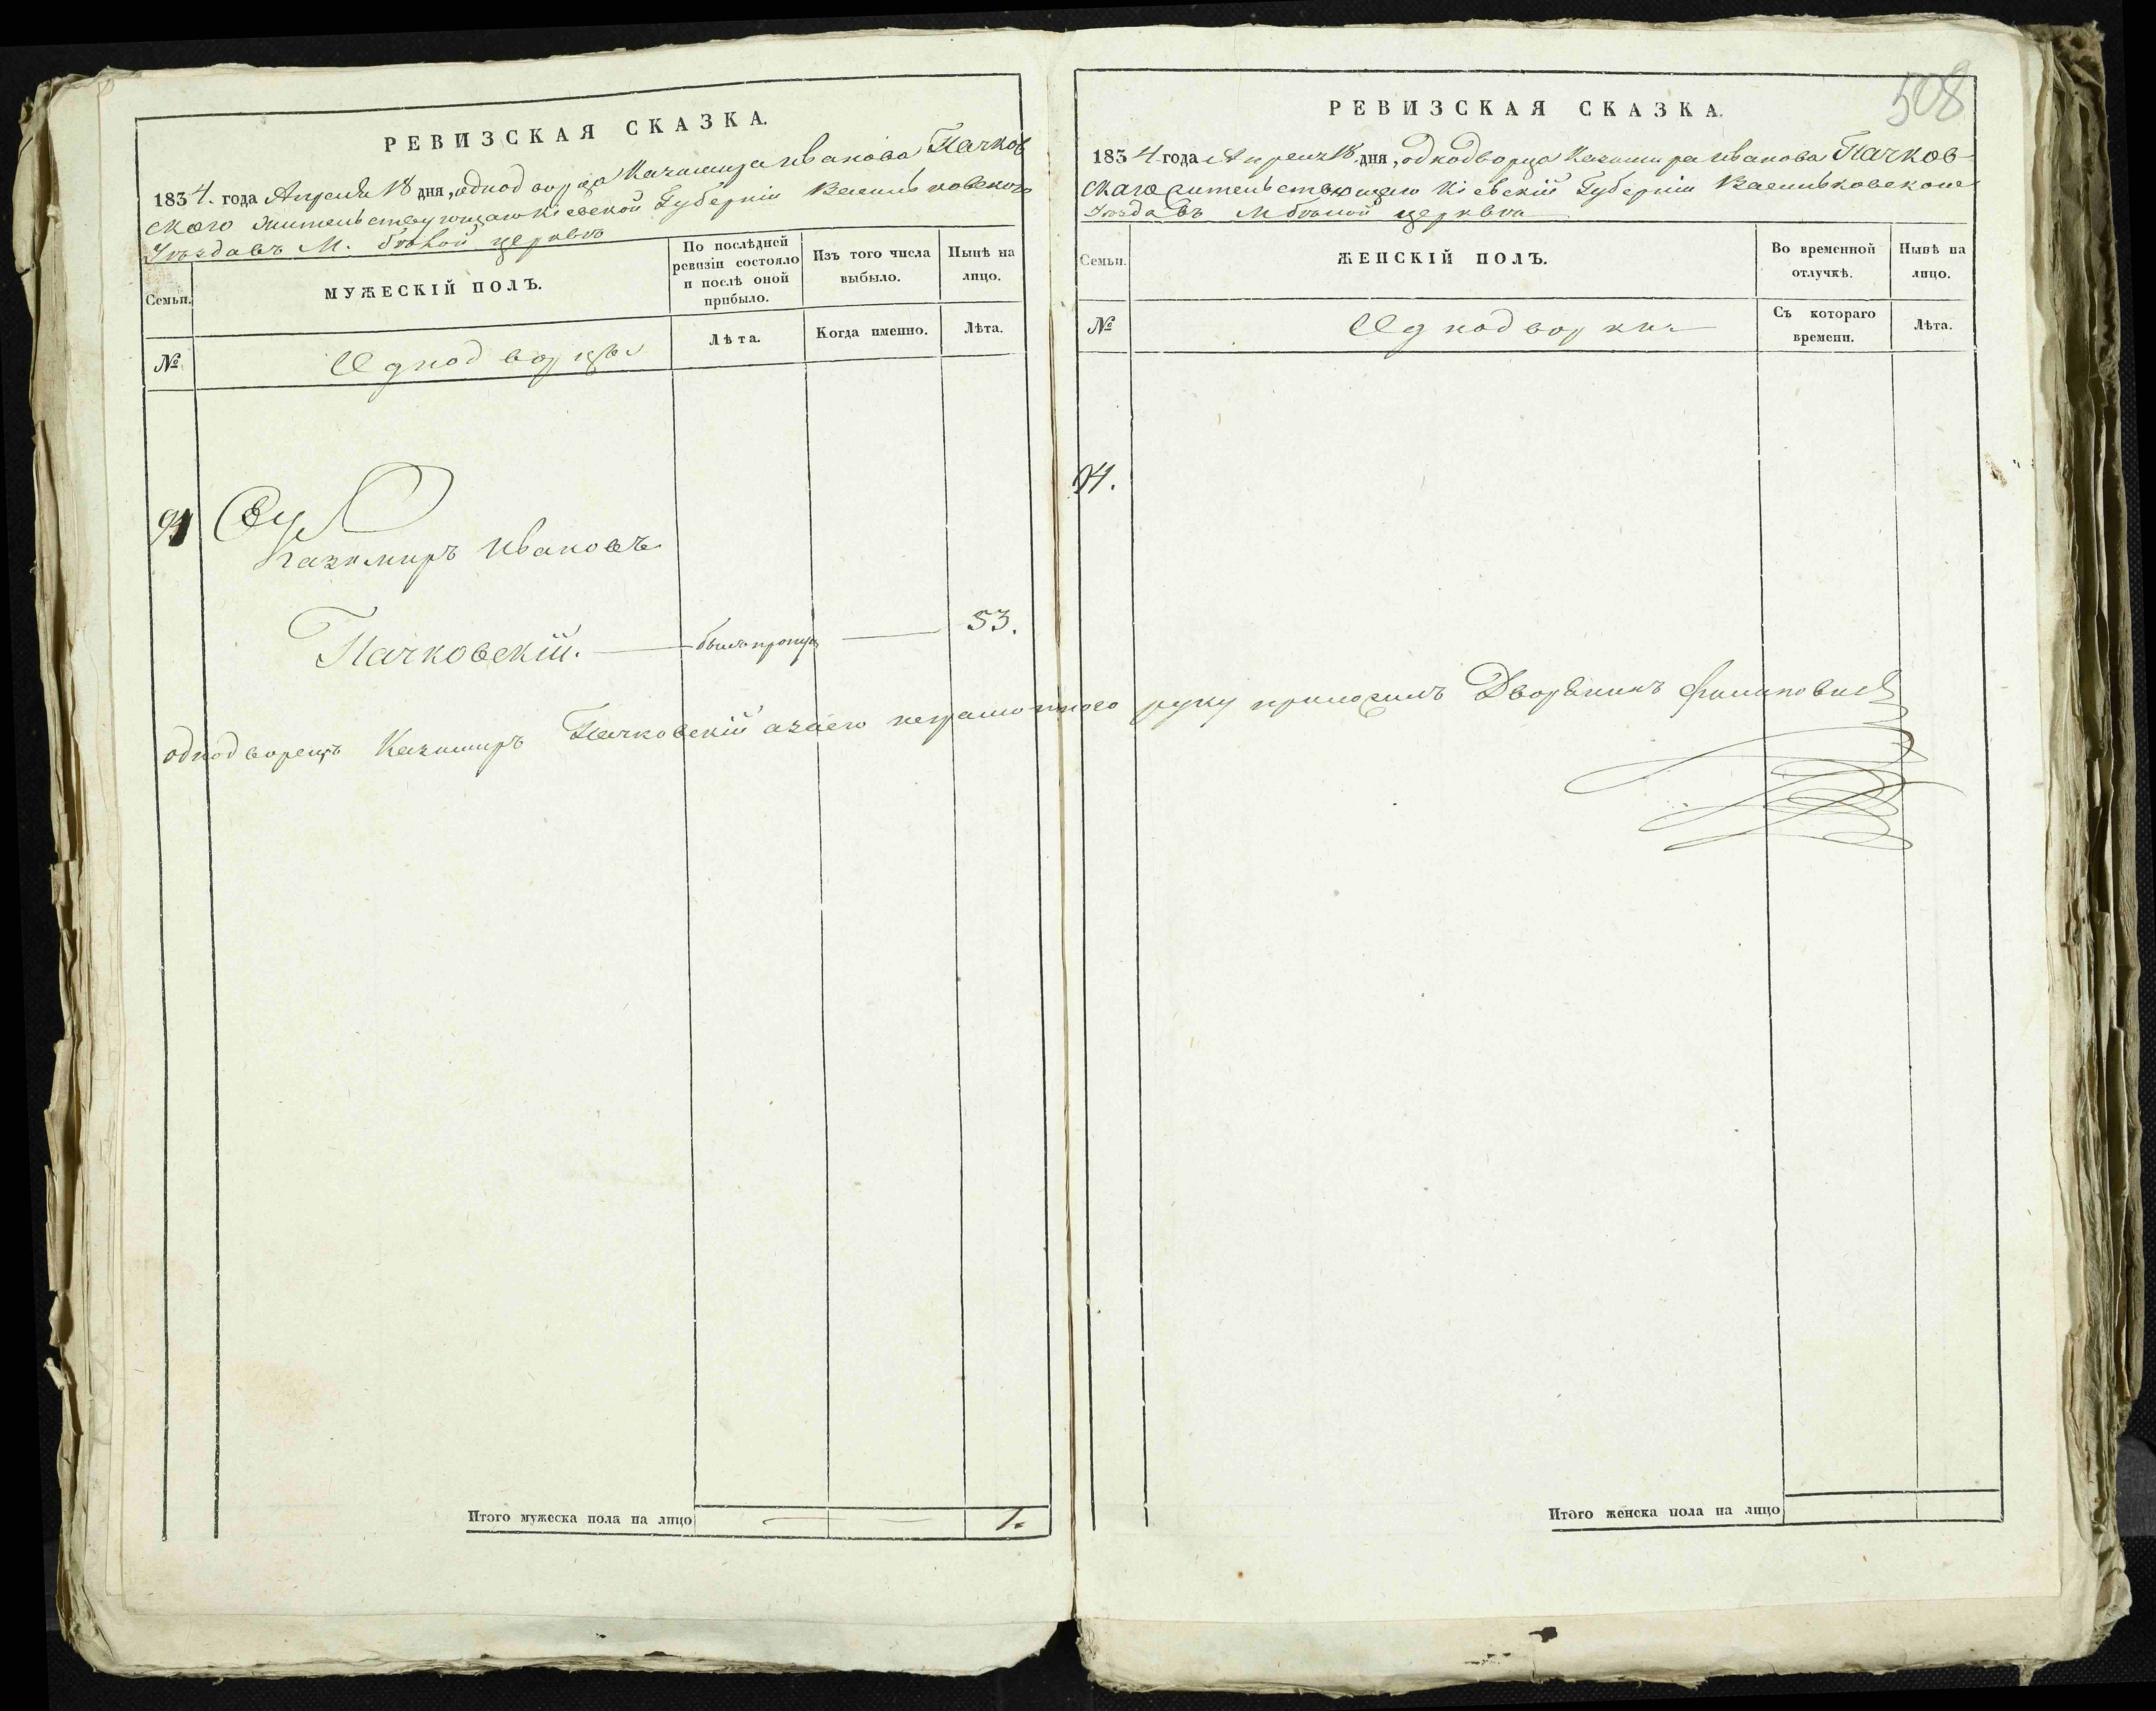 РЕВИЗСКАЯ СКАЗКА.
1834. года Апреля 18 дня, однодворца Казимира Иванова Пачков
ского жительствующаго Кіевской Губерніи Васильковского
Уѣзда въ М. бѣлой церквѣ
Семьи.
МУЖЕСКІЙ ПОЛЪ.
По послѣдней ревизіи состояло и послѣ оной прибыло.
Изъ того числа выбыло.
Нынѣ на лицо.
№
Однодворцы
Лѣта.
Когда именно.
Лѣта.
94
Казимиръ Ивановъ
Пачковскій. — былъ пропущ — 53.
однодворецъ Казимиръ Пачковскій азаего неграмотного руку приложилъ Дворянинъ Филиповичъ
Итого мужеска пола на лицо — — 1.
508
РЕВИЗСКАЯ СКАЗКА.
1834 года Апреля 18 дня, однодворца Казимира Иванова Пачков-
скаго жительствующаго Кіевскій Губерніи Васильковского
Уѣзда въ М бѣлой церквѣ
Семьи.
ЖЕНСКІЙ ПОЛЪ.
Во временной отлучкѣ.
Нынѣ на лицо.
№
Однодворки
Съ котораго времени.
Лѣта.
94.
Итого женска пола на лицо